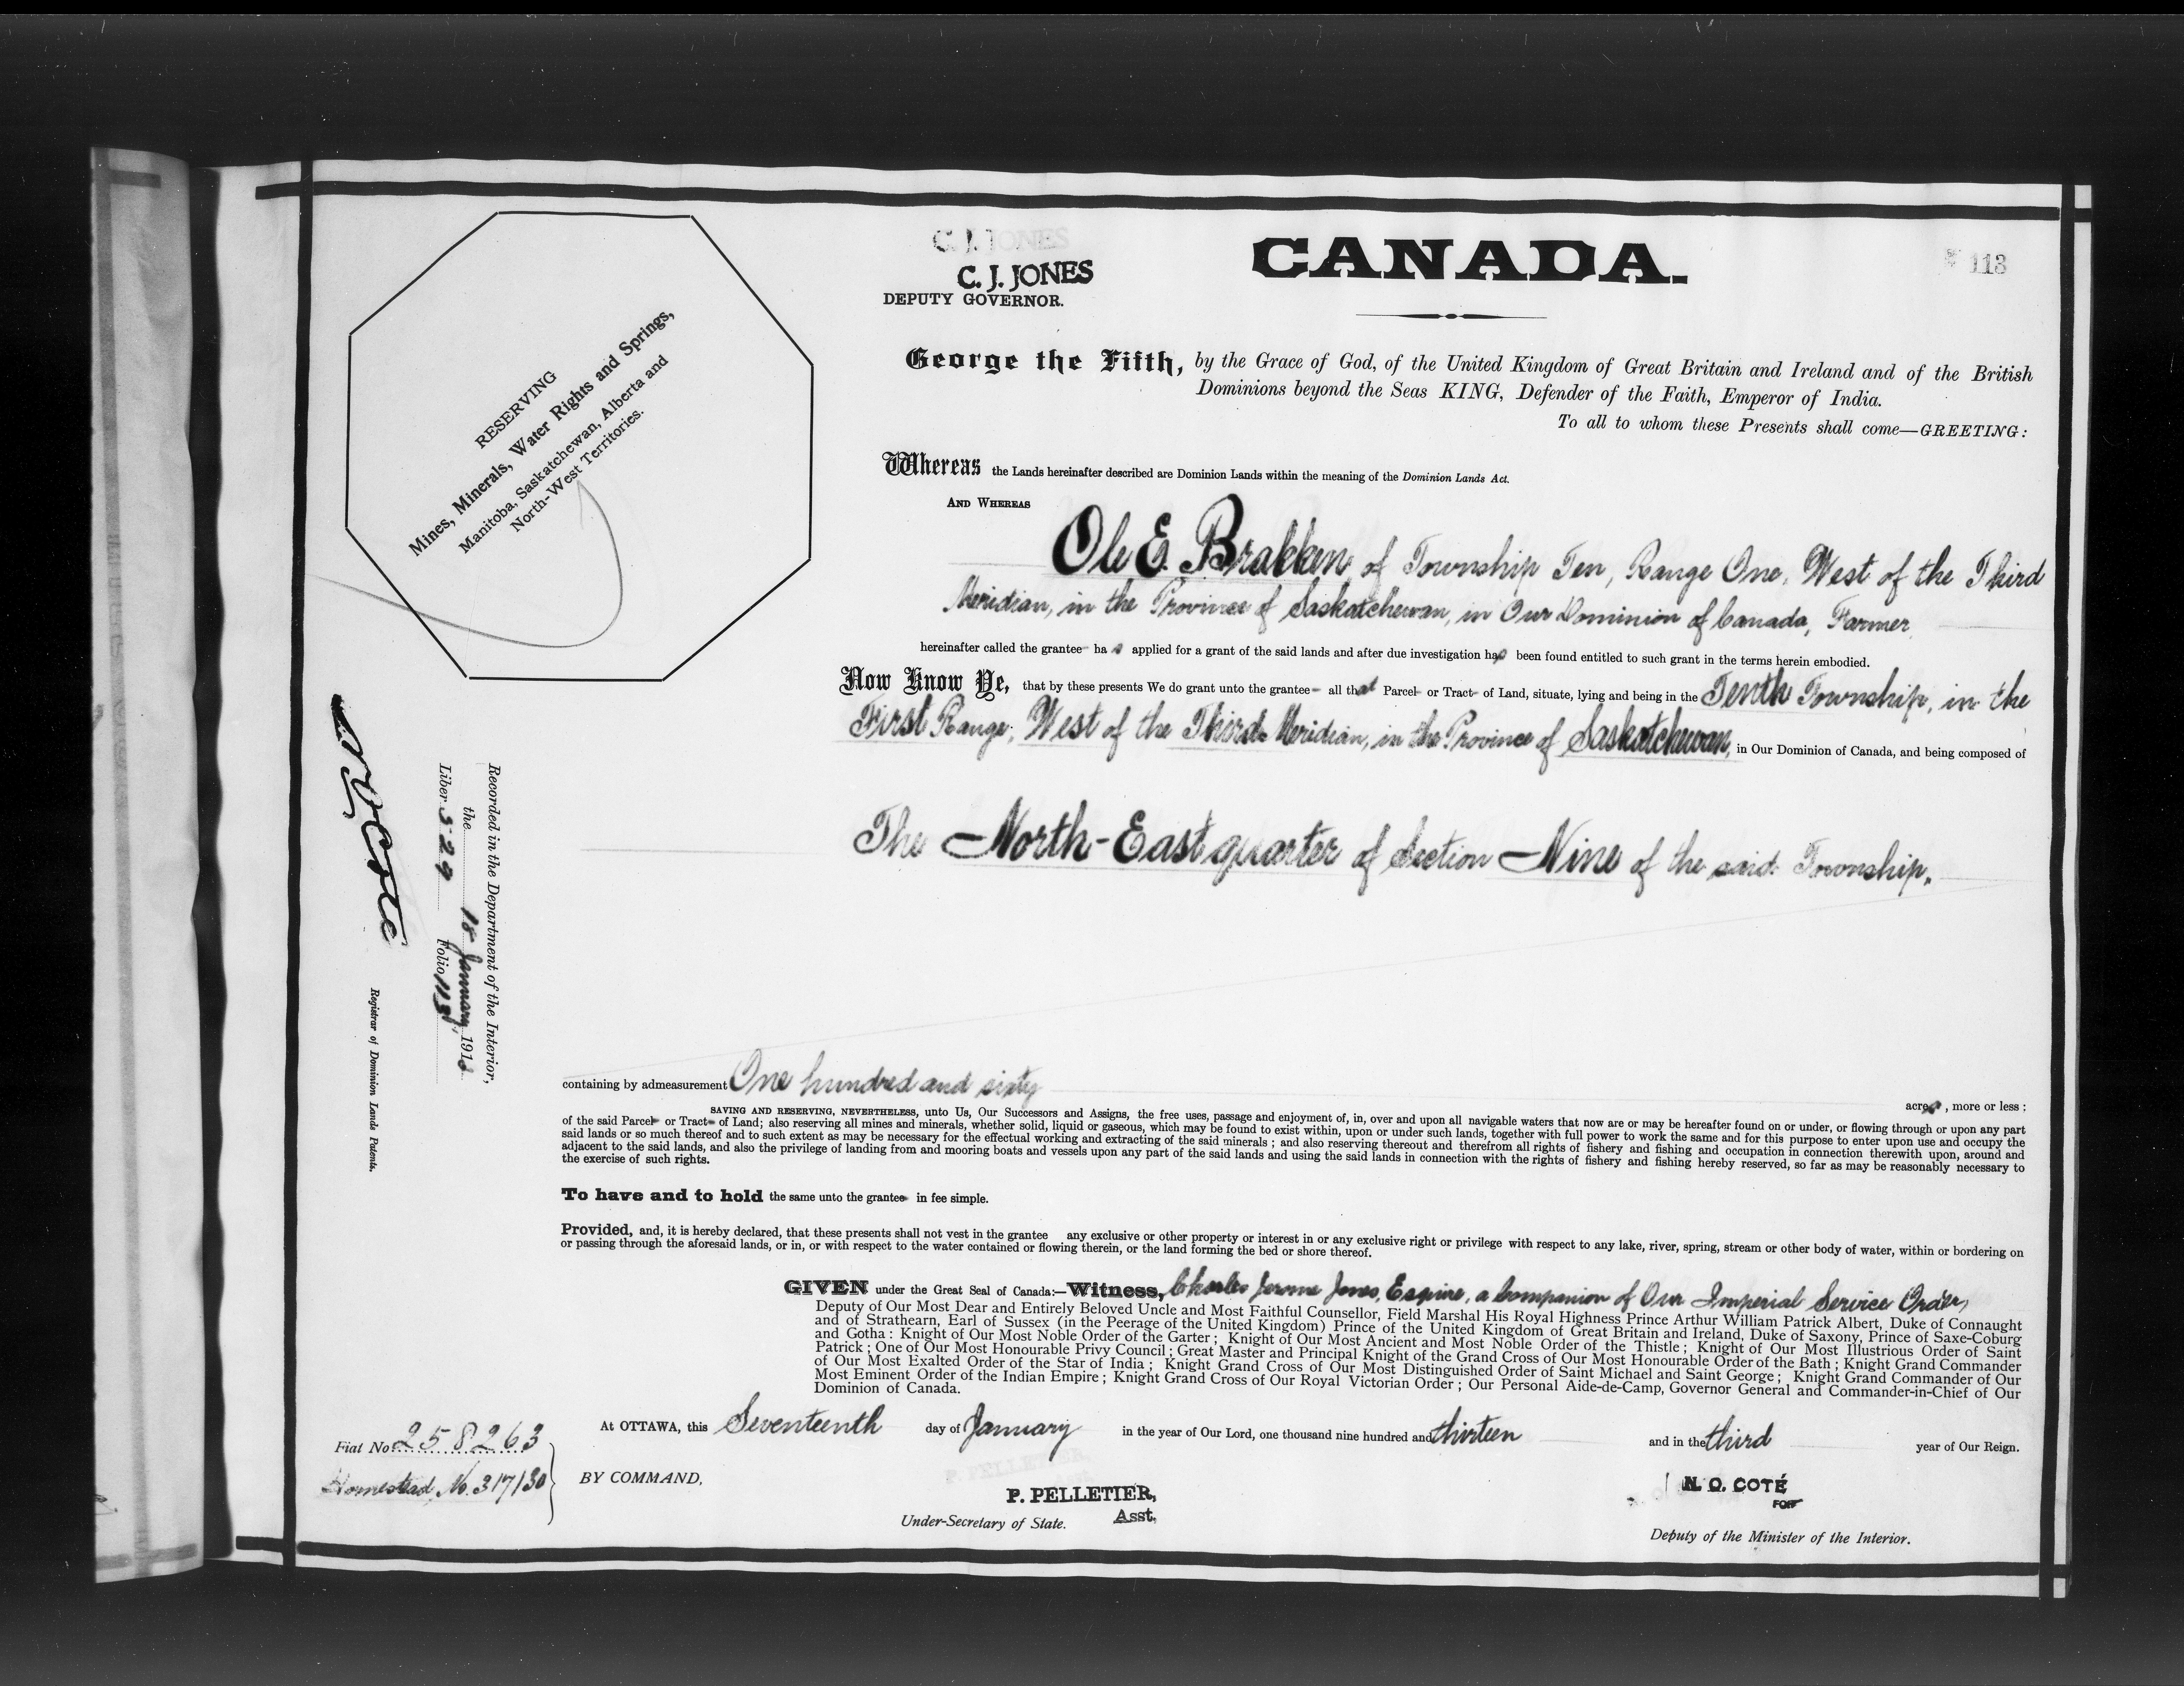 C. J. JONES
C. J. JONES
DEPUTY GOVERNOR.
CANADA.
113
RESERVING
Mines, Minerals, Water Rights and Springs,
Manitoba, Saskatchewan, Alberta and
North-West Territories.
George the Fifth, by the Grace of God, of the United Kingdom of Great Britain and Ireland and of the British
Dominions beyond the Seas KING, Defender of the Faith, Emperor of India.
To all to whom these Presents shall come—GREETING:
Whereas the Lands hereinafter described are Dominion Lands within the meaning of the Dominion Lands Act.
AND WHEREAS
Ole E. Brakken of Township Ten, Range One, West of the Third
Meridian, in the Province of Saskatchewan, in Our Dominion of Canada, Farmer
hereinafter called the grantee ha s applied for a grant of the said lands and after due investigation has been found entitled to such grant in the terms herein embodied.
Now Know Ye, that by these presents We do grant unto the grantee all that Parcel or Tract of Land, situate, lying and being in the Tenth Township, in the
First Range, West of the Third Meridian, in the Province of Saskatchewan, in Our Dominion of Canada, and being composed of
The North-East quarter of Section Nine of the said Township.
Recorded in the Department of the Interior,
the 18 January, 1913
Liber 529 Folio 113
N O Coté
Registrar of Dominion Lands Patents.
containing by admeasurement One hundred and sixty acres, more or less:
SAVING AND RESERVING, NEVERTHELESS, unto Us, Our Successors and Assigns, the free uses, passage and enjoyment of, in, over and upon all navigable waters that now are or may be hereafter found on or under, or flowing through or upon any part
of the said Parcel or Tract of Land; also reserving all mines and minerals, whether solid, liquid or gaseous, which may be found to exist within, upon or under such lands, together with full power to work the same and for this purpose to enter upon use and occupy the
said lands or so much thereof and to such extent as may be necessary for the effectual working and extracting of the said minerals; and also reserving thereout and therefrom all rights of fishery and fishing and occupation in connection therewith upon, around and
adjacent to the said lands, and also the privilege of landing from and mooring boats and vessels upon any part of the said lands and using the said lands in connection with the rights of fishery and fishing hereby reserved, so far as may be reasonably necessary to
the exercise of such rights.
To have and to hold the same unto the grantee in fee simple.
Provided, and, it is hereby declared, that these presents shall not vest in the grantee any exclusive or other property or interest in or any exclusive right or privilege with respect to any lake, river, spring, stream or other body of water, within or bordering on
or passing through the aforesaid lands, or in, or with respect to the water contained or flowing therein, or the land forming the bed or shore thereof.
GIVEN under the Great Seal of Canada:—Witness, Charles Jerome Jones, Esquire, a Companion of Our Imperial Service Order,
Deputy of Our Most Dear and Entirely Beloved Uncle and Most Faithful Counsellor, Field Marshal His Royal Highness Prince Arthur William Patrick Albert, Duke of Connaught
and of Strathearn, Earl of Sussex (in the Peerage of the United Kingdom) Prince of the United Kingdom of Great Britain and Ireland, Duke of Saxony, Prince of Saxe-Coburg
and Gotha: Knight of Our Most Noble Order of the Garter; Knight of Our Most Ancient and Most Noble Order of the Thistle; Knight of Our Most Illustrious Order of Saint
Patrick; One of Our Most Honourable Privy Council; Great Master and Principal Knight of the Grand Cross of Our Most Honourable Order of the Bath; Knight Grand Commander
of Our Most Exalted Order of the Star of India; Knight Grand Cross of Our Most Distinguished Order of Saint Michael and Saint George; Knight Grand Commander of Our
Most Eminent Order of the Indian Empire; Knight Grand Cross of Our Royal Victorian Order; Our Personal Aide-de-Camp, Governor General and Commander-in-Chief of Our
Dominion of Canada.
At OTTAWA, this Seventeenth day of January in the year of Our Lord, one thousand nine hundred and thirteen and in the third year of Our Reign.
Fiat No. 258263
Homestead, No. 317130
BY COMMAND,
P. PELLETIER
P. PELLETIER,
Asst.
Under-Secretary of State.
N. O. COTÉ
FOR
Deputy of the Minister of the Interior.